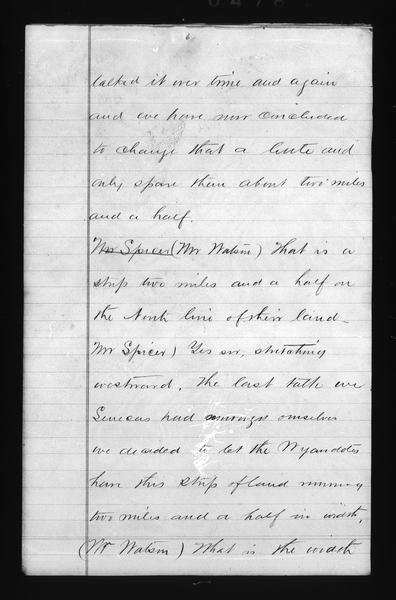 6
talked it over time and again
and we have now concluded
to change that a little and
only spare them about two miles
and a half.
Mr Spicer (Mr Watson) That is a
strip two miles and a half on
the North line of their land_
Mr Spicer) Yes sir, stretching
westward. The last talk we
Senecas had amongst ourselves
we decided to let the Wyandotts
have this strip of land running
two miles and a half in width,
(Mr Watson) What is the width